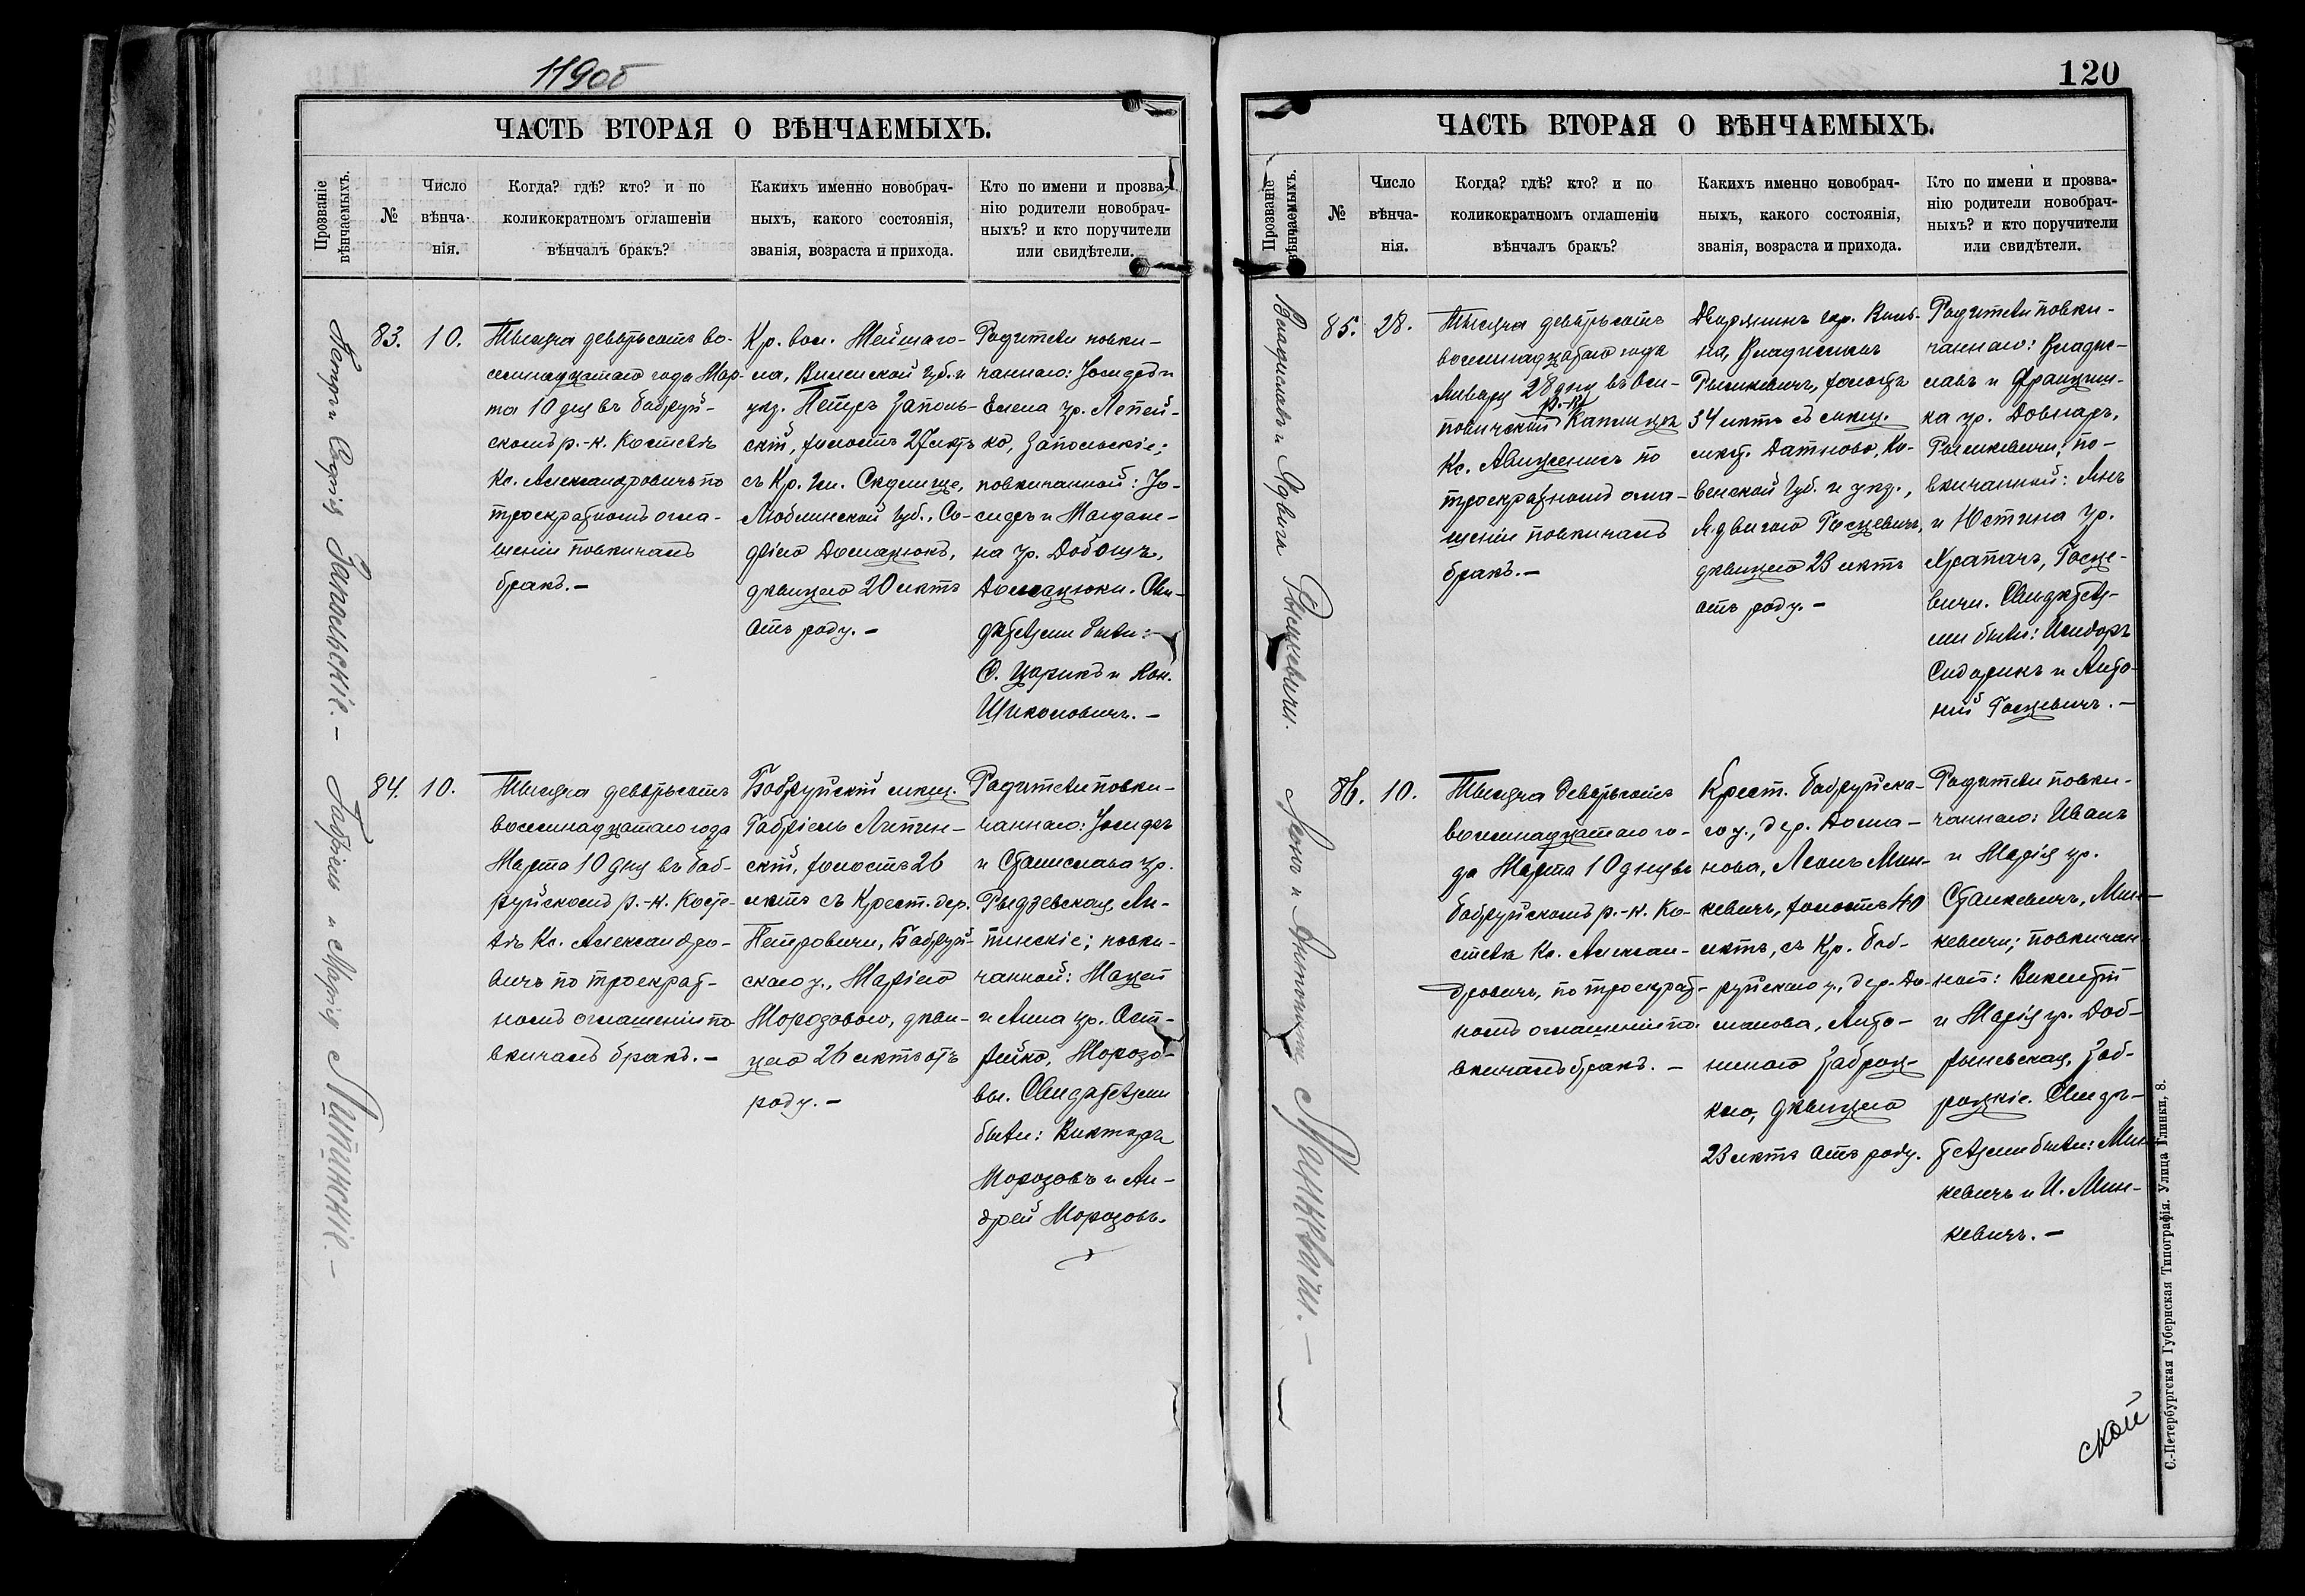 119об
ЧАСТЬ ВТОРАЯ О ВѢНЧАЕМЫХЪ.
Прозваніе
вѣнчаемыхъ.
№
Число
вѣнча-
нія.
Когда? гдѣ? кто? и по
коликократномъ оглашеніи
вѣнчалъ бракъ?
Какихъ именно новобрач-
ныхъ, какого состоянія,
званія, возраста и прихода.
Кто по имени и прозва-
нію родители новобрач-
ныхъ? и кто поручители
или свидѣтели.
Петръ и Софія Запольскіе. –
83.
10.
Тысяча девятьсотъ во-
семнадцатаго года Мар-
та 10 дня въ Бобруй-
скомъ р.-к. Костелѣ
Кс. Александровичъ по
троекратномъ огла-
шеніи повѣнчалъ
бракъ. –
Кр. вол. Мейшаго-
ла, Виленской губ. и
уѣз. Петръ Заполь-
скій, холостъ 27 лѣтъ
съ Кр. гм. Скулище,
Люблинской губ., Со-
фіею Домацюкъ,
дѣвицею 20 лѣтъ
отъ роду. –
Родители повѣн-
чаннаго: Іосифъ и
Елена ур. Лепей-
ко, Запольскіе;
повѣнчанной: Іо-
сифъ и Магдале-
на ур. Добошъ,
Домацюки. Сви-
дѣтелями были:
О. Царикъ и Кон.
Шиколовичъ. –
Габріель и Марія Липинскіе. –
84.
10.
Тысяча девятьсотъ
восемнадцатаго года
Марта 10 дня въ Боб-
руйскомъ р.-к. Косте-
лѣ Кс. Александро-
вичъ по троекрат-
номъ оглашеніи по-
вѣнчалъ бракъ. –
Бобруйскій мѣщ.
Габріель Липин-
скій, холостъ 26
лѣтъ съ Крест. дер.
Петровичи, Бобруй-
скаго у., Маріею
Морозовою, дѣви-
цею 26 лѣтъ отъ
роду. –
Родители повѣн-
чаннаго: Іосифъ
и Станислава ур.
Рыдзевская, Ли-
пинскіе; повѣн-
чанной: Мацей
и Анна ур. Ост-
рейко, Морозо-
вы. Свидѣтелями
были: Викторъ
Морозовъ и Ан-
дрей Морозовъ.
120
ЧАСТЬ ВТОРАЯ О ВѢНЧАЕМЫХЪ.
Прозваніе
вѣнчаемыхъ.
№
Число
вѣнча-
нія.
Когда? гдѣ? кто? и по
коликократномъ оглашеніи
вѣнчалъ бракъ?
Какихъ именно новобрач-
ныхъ, какого состоянія,
званія, возраста и прихода.
Кто по имени и прозва-
нію родители новобрач-
ныхъ? и кто поручители
или свидѣтели.
Владиславъ и Ядвига
85.
28.
Тысяча девятьсотъ
восемнадцатаго года
Января 28 дня въ Оси-
р.-к.
повичской Каплицѣ
Кс. Авиженисъ по
троекратномъ огла-
шеніи повѣнчалъ
бракъ. –
Дворянинъ гор. Виль-
на, Владиславъ
холостъ
34 лѣтъ съ мѣщ.
мѣст. Датново, Ко-
венской губ. и уѣз.,
Ядвигою Госцевичъ,
дѣвицею 23 лѣтъ
отъ роду. –
Родители повѣн-
чаннаго: Владис-
лавъ и Францищ-
ка ур. Довнаръ,
по-
вѣнчанной: Янъ
и Юстина ур.
Хратачъ, Госце-
вичи. Свидѣтеля-
ми были: Исидоръ
Сидорикъ и Анто-
ній Госцевичъ. –
Леонъ и Антонина Минкевичи. –
86.
10.
Тысяча девятьсотъ
восемнадцатаго го-
да Марта 10 дня въ
Бобруйскомъ р.-к. Ко-
стелѣ Кс. Алексан-
дровичъ, по троекрат-
номъ оглашеніи по-
вѣнчалъ бракъ. –
Крест. Бобруйска-
го у., дер. Дома-
нова, Леонъ Мин-
кевичъ, холостъ 40
лѣтъ, съ Кр. Боб-
руйскаго у., дер. До-
манова, Анто-
ниною Заброц-
кою, дѣвицею
23 лѣтъ отъ роду.
Родители повѣн-
чаннаго: Иванъ
и Марія ур.
Станкевичъ, Мин-
кевичи; повѣнчан-
ной: Викентій
и Марія ур. Доб-
рыневская, Заб-
роцкіе. Свидѣ-
телями были: Мин-
кевичъ и И. Мин-
кевичъ. –
ской
С.-Петербургская Губернская Типографія. Улица Глинки, 8.